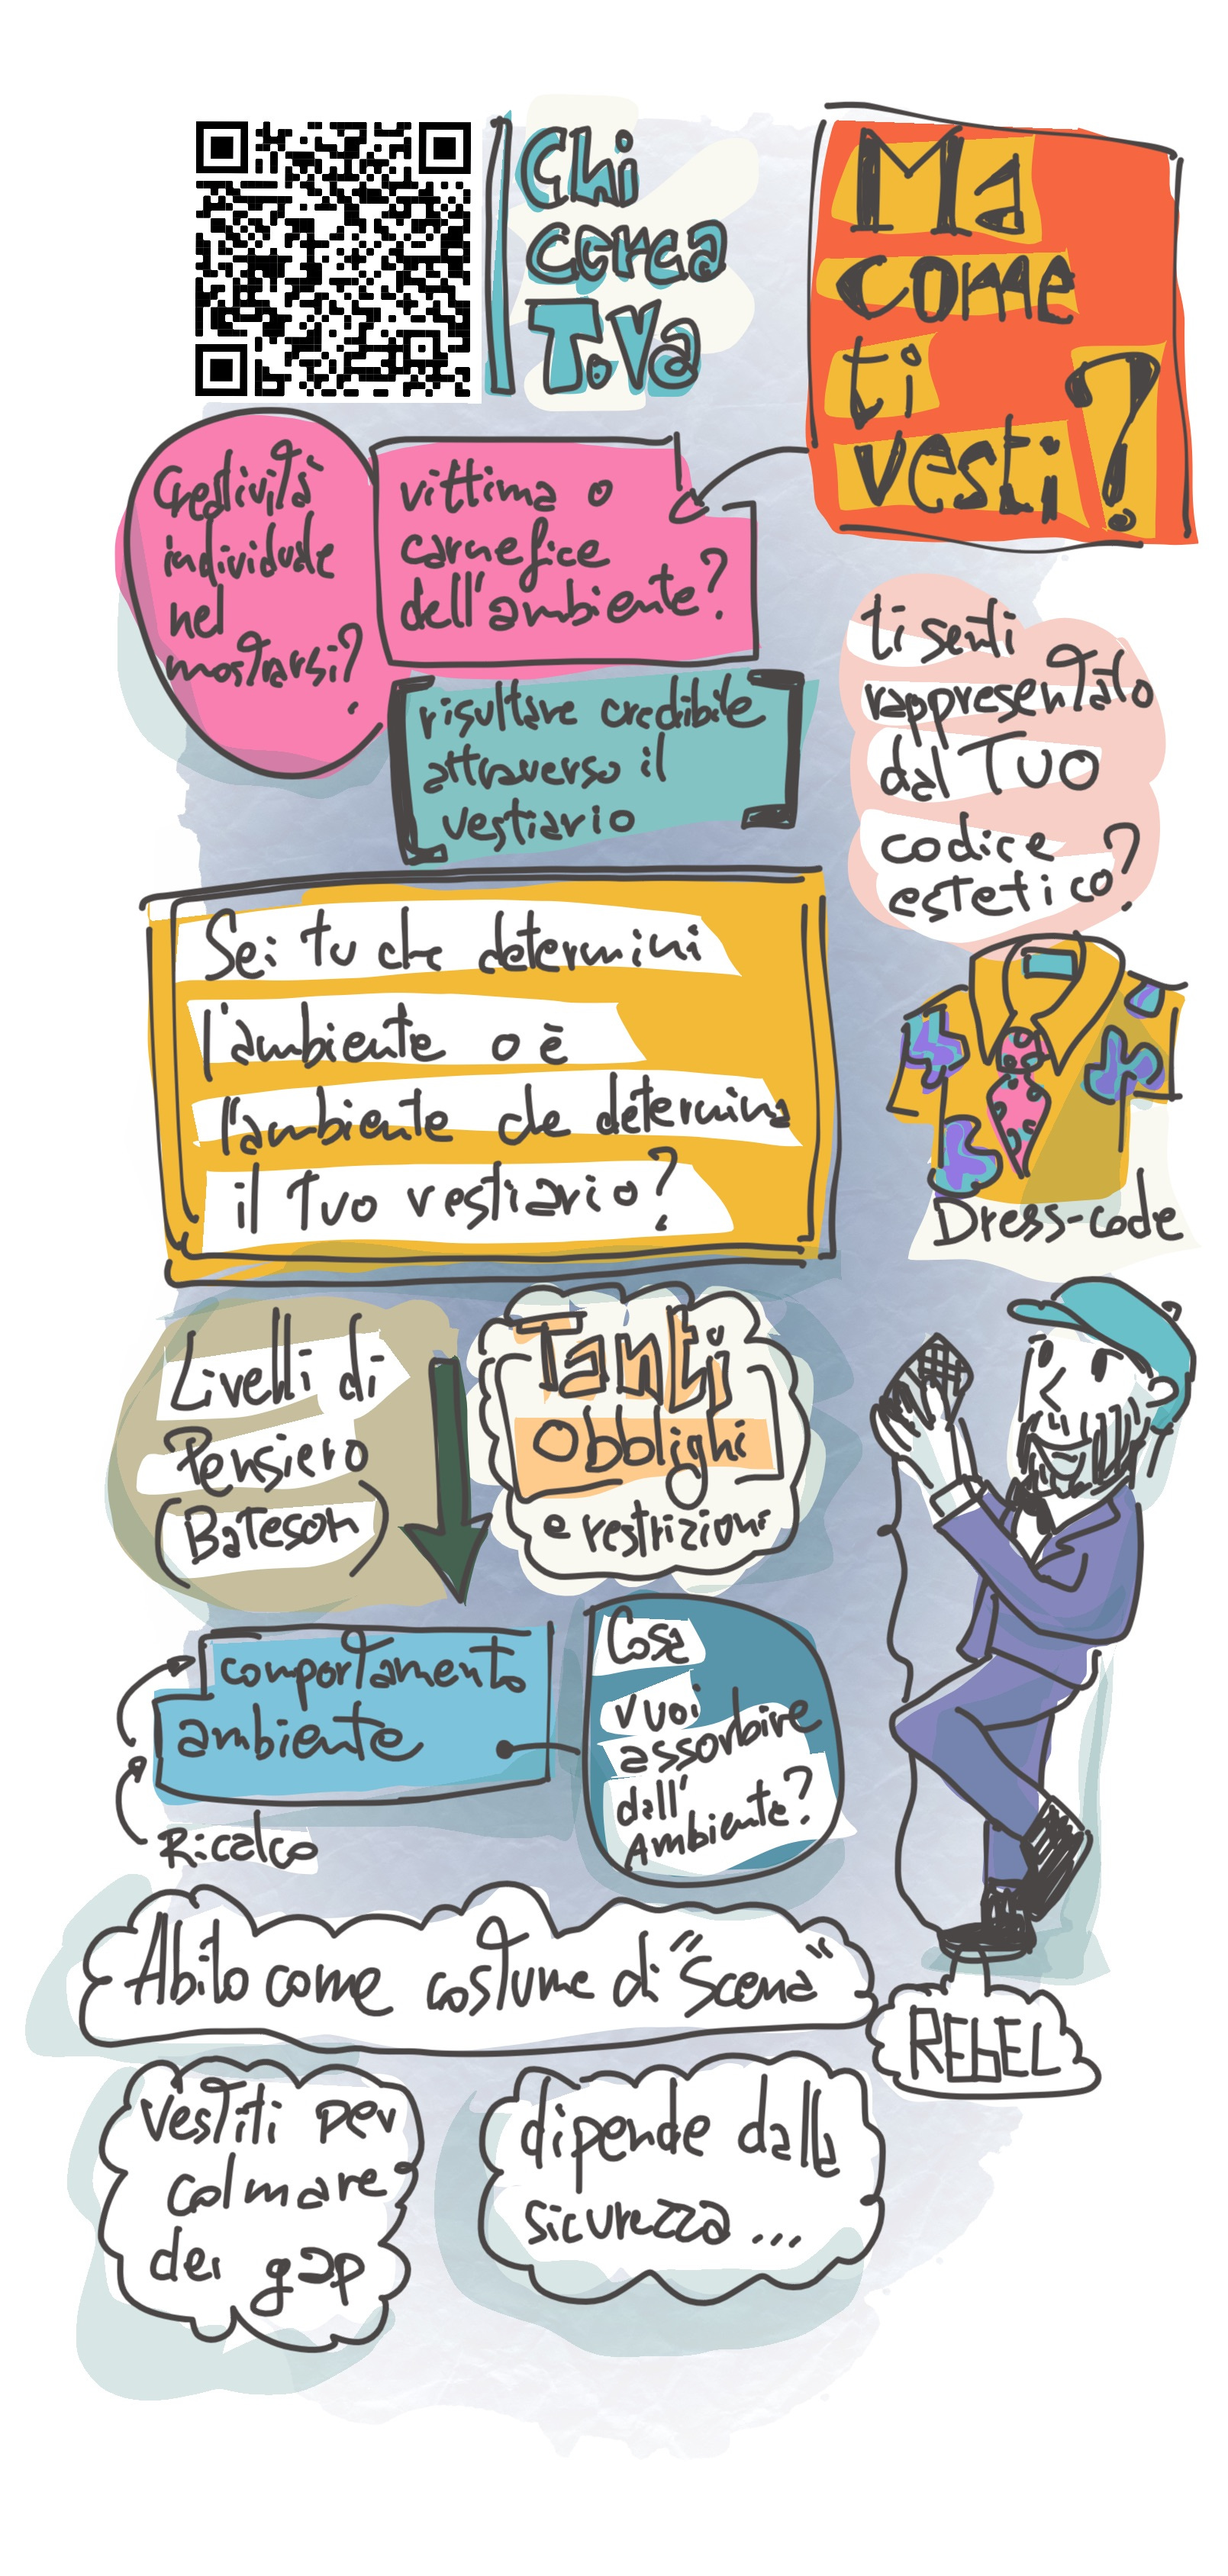 Chi
cerca
T.Va
Ma
come
ti
vesti?
Creatività
individuale
nel
mostrarsi?
vittima o
carnefice
dell'ambiente?
risultare credibile
attraverso il
vestiario
ti senti
rappresentato
dal TUO
codice
estetico?
Sei tu che determini
l'ambiente o è
l'ambiente che determina
il tuo vestiario?
Dress-code
Livelli di
Pensiero
(Bateson)
Tanti
Obblighi
e restrizioni
comportamento
ambiente
Ricalco
Cosa
vuoi
assorbire
dall'
Ambiente?
Abito come costume di "Scena"
REbEL
vestiti per
colmare
dei gap
dipende dalla
sicurezza...